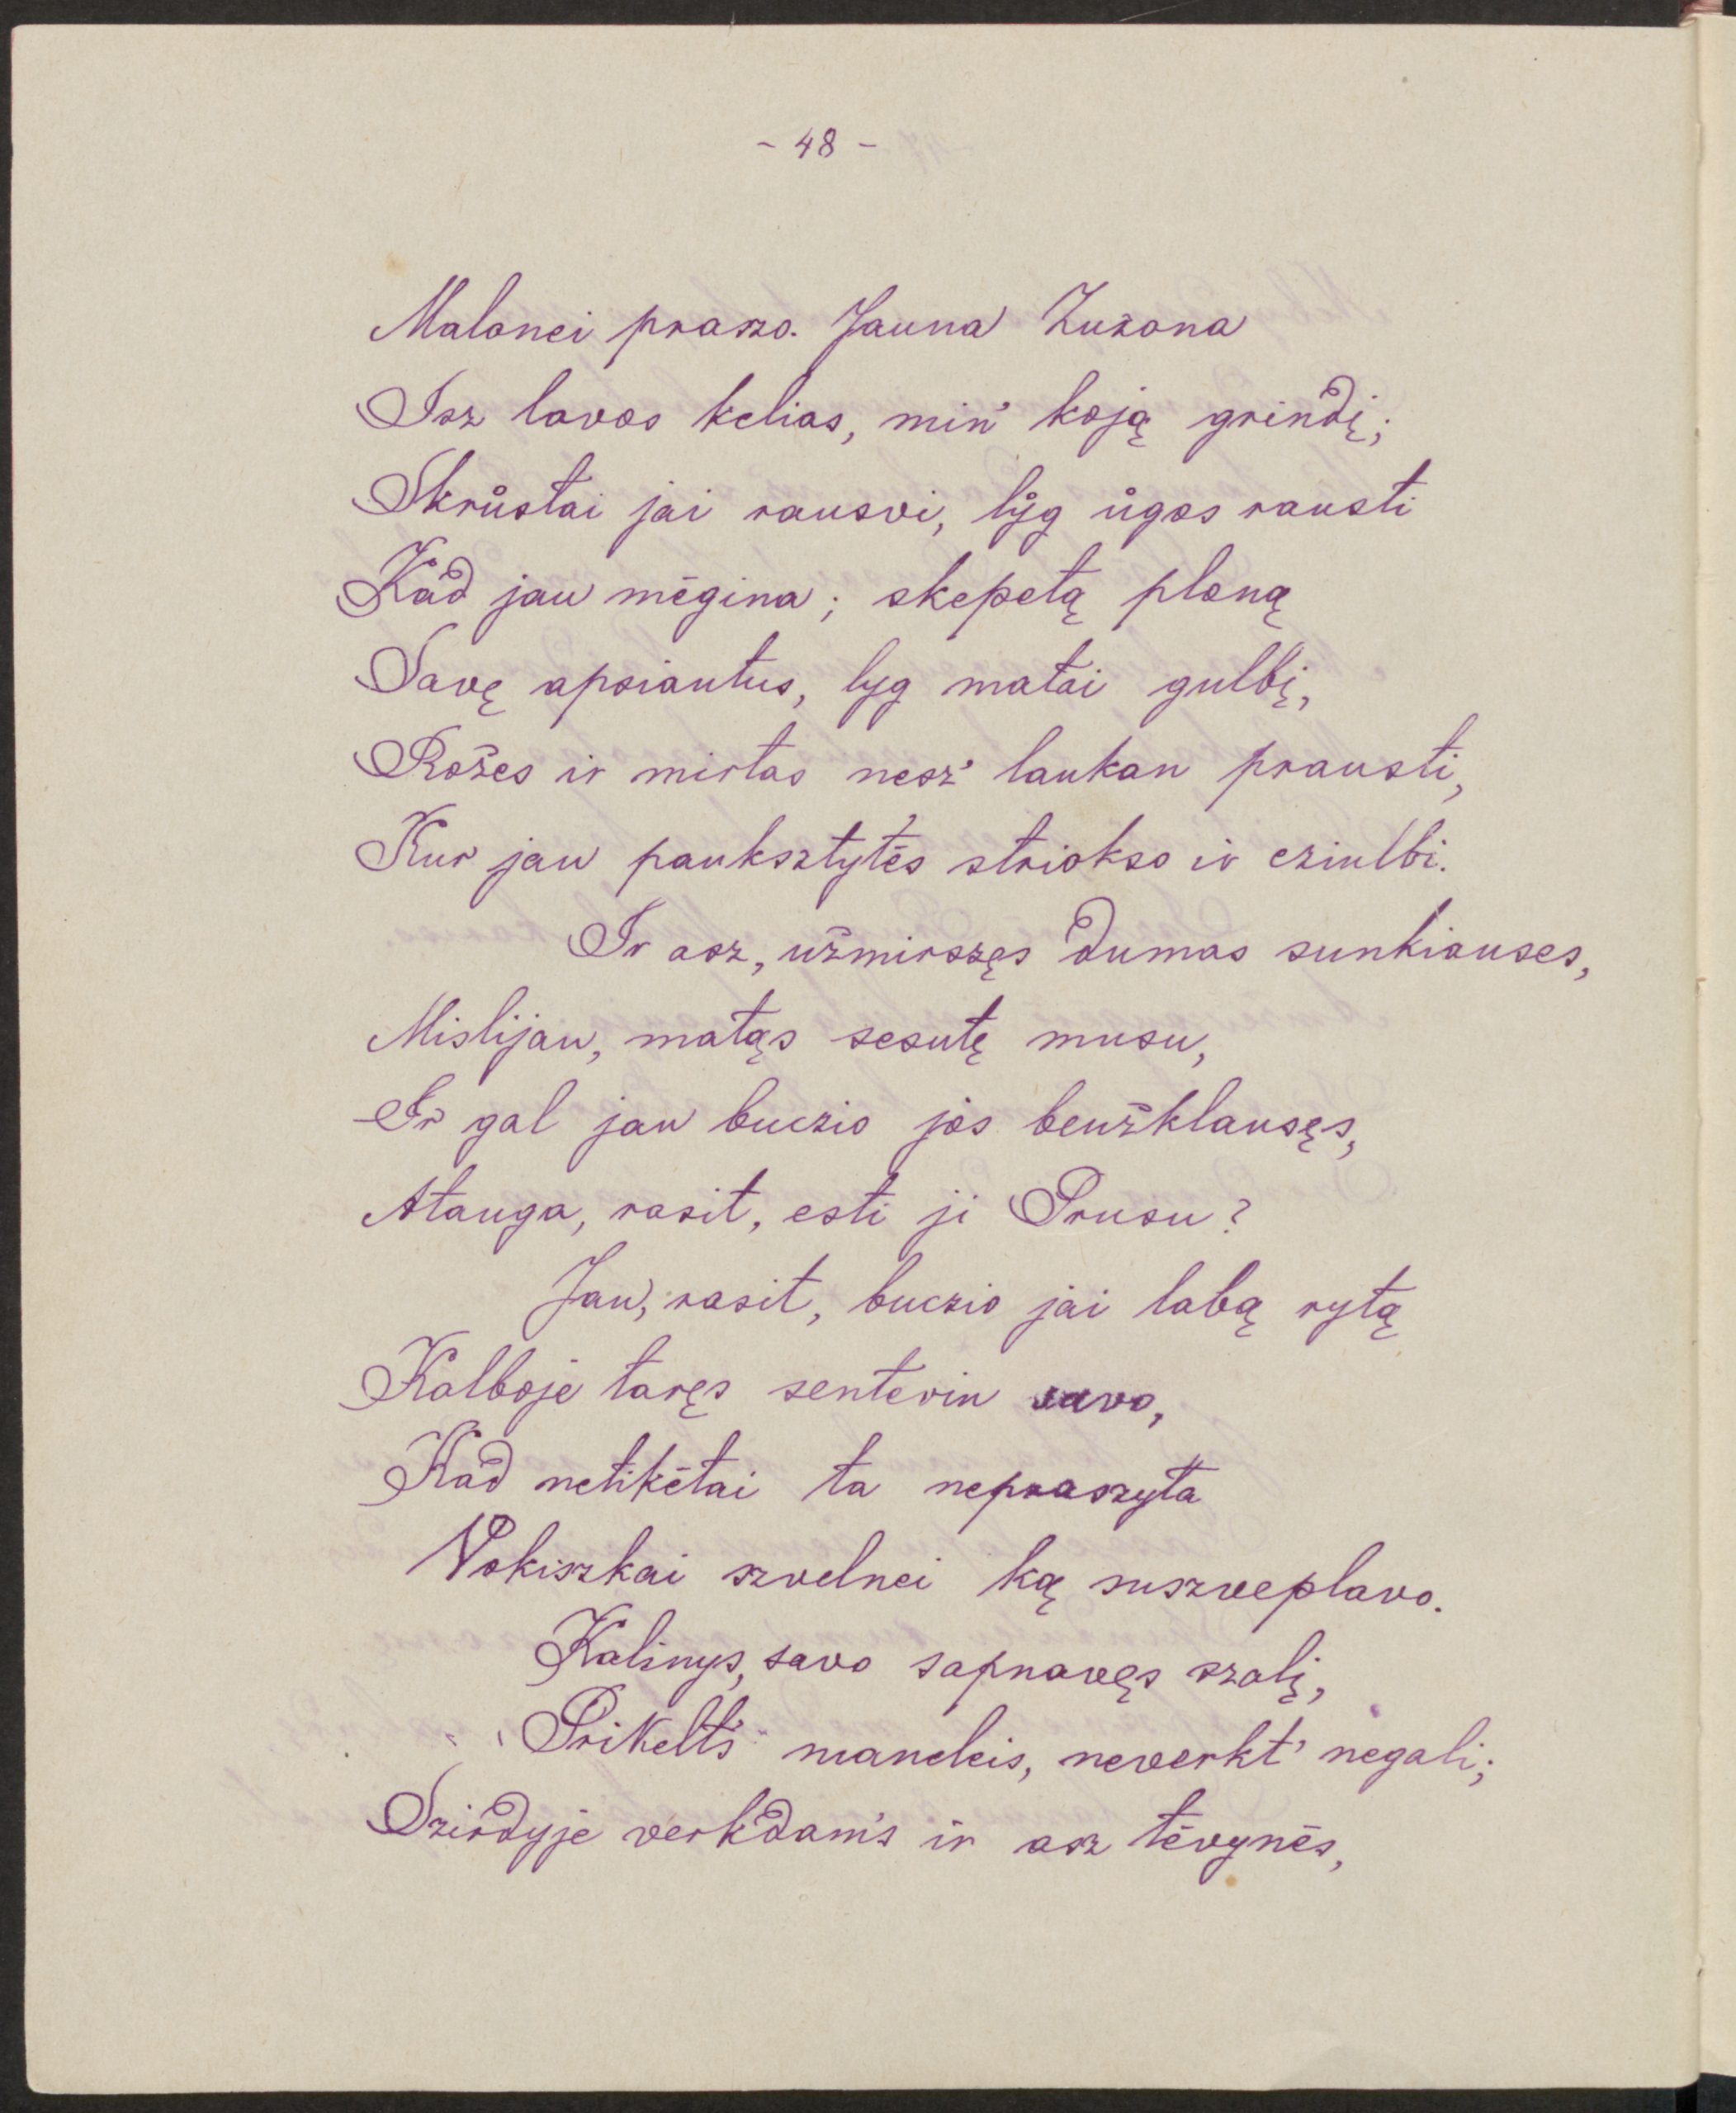 - 48 -
Malonei praszo. Jauna Zuzona
Isz lovos kelias, min' koją grindį;
Skrůstai jai rausvi, lyg ůgos rausti
Kad jau mėgina; skepetą ploną
Savę apsiautus, lyg matai gulbį,
Rožes ir mirtas nesz' laukan prausti,
Kur jau pauksztytės striokso ir cziulbi.
Ir asz, užmirszęs dumas sunkiauses,
Mislijau, matąs sesutę musu,
Ir gal jau buczio jos benžklausęs,
Atauga, rasit, esti ji Prusu?
Jau, rasit, buczio jai labą rytą
Kalboje taręs senteviu savo,
Kad netikėtai ta nepraszyta
Vokiszkai szvelnei ką suszveplavo.
Kalinys, savo sapnavęs szalį,
Prikelts maneleis, neverkt' negali;
Szirdyje verkdam's ir asz tėvynės,